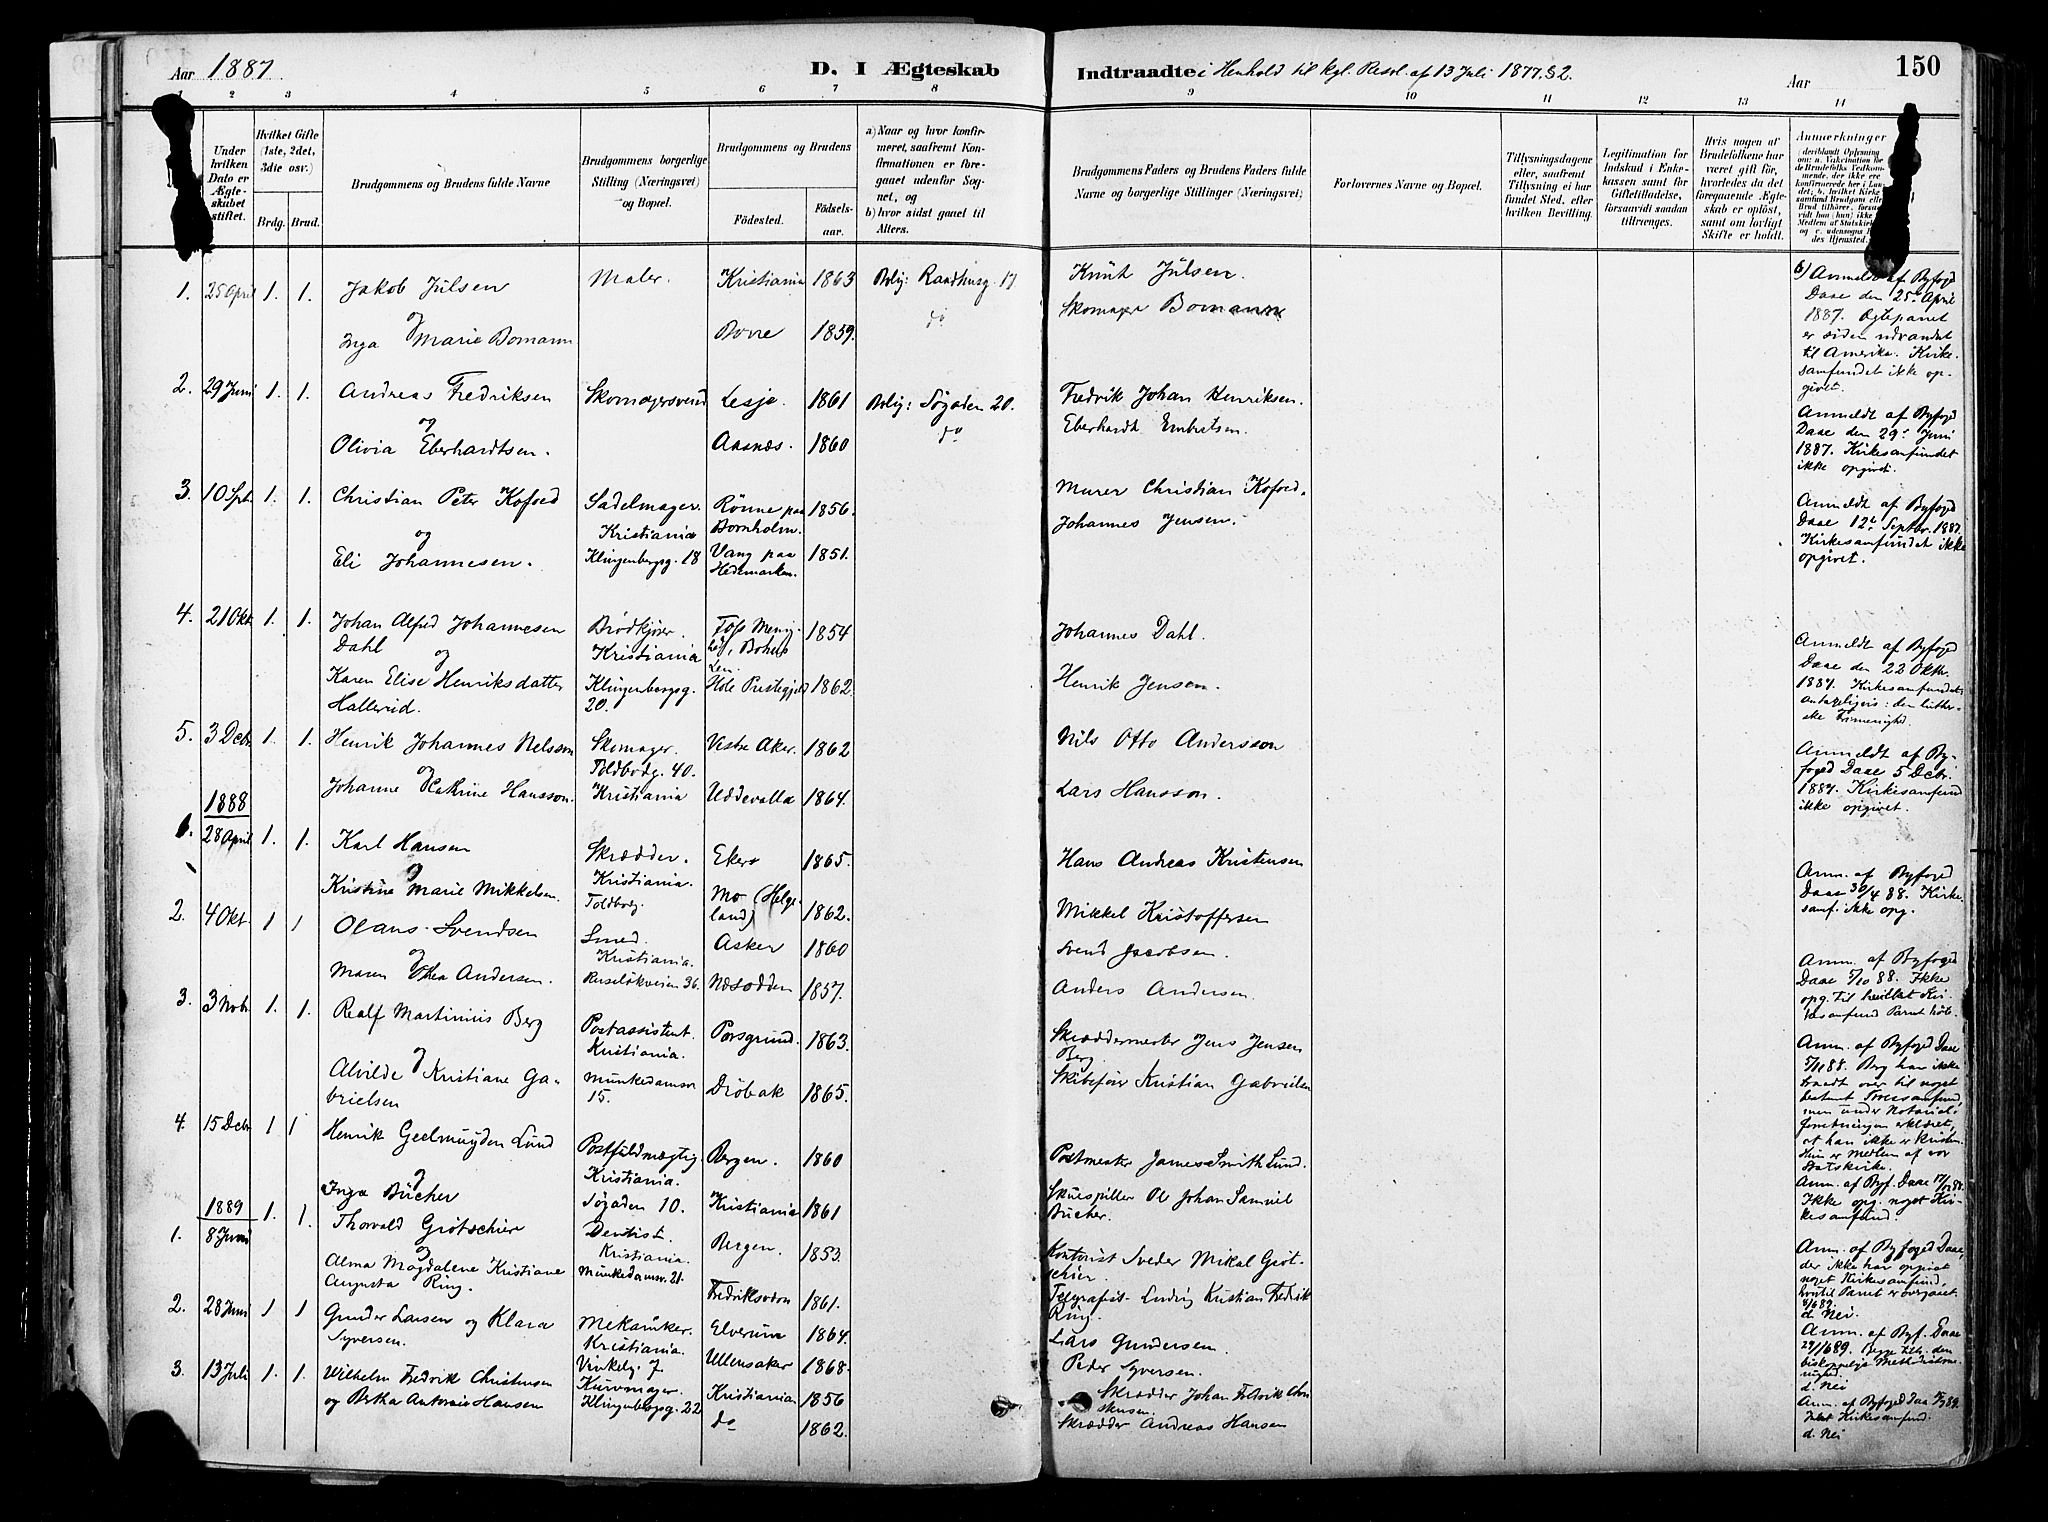 Aar 1887.
D. I Ægteskab
Indtraadte i Henhold til kgl. Resol. af 13 Juli 1877 § 2.
Aar
150
1 2 3 4 5 6 7 8 9 10 11 12 13 14
Under hvilken Dato er Ægteskabet stiftet.
Hvilket Gifte (1ste, 2det, 3die osv.)
Brdg. Brud.
Brudgommens og Brudens fulde Navne
Brudgommens borgerlige Stilling (Næringsvei) og Bopæl.
Brudgommens og Brudens
Fødested. Fødselsaar.
a) Naar og hvor konfirmeret, saafremt Konfirmationen er foregaaet udenfor Sognet, og
b) hvor sidst gaaet til Alters.
Brudgommens Faders og Brudens Faders fulde Navne og borgerlige Stillinger (Næringsvei)
Forlovernes Navne og Bopæl.
Tillysningsdagene eller, saafremt Tillysning ei har fundet Sted, efter hvilken Bevilling.
Legitimation for Indskud i Enkekassen samt for Giftetilladelse, forsaavidt saadan tiltrænges.
Hvis nogen af Brudefolkene har været gift før, hvorledes da det foregaaende Ægteskab er opløst, samt om lovligt Skifte er holdt.
Anmærkninger
1. 25 April 1. 1. Jakob Julsen Maler Kristiania 1863 Bolig: Raadhusg. 17 Knut Julsen.
og
Inga Marie Bomann Borre 1859. do Skomager Bomann
Anmeldt af Byfoged
Daae den 25de April
1887. Egteparret
er siden udvandret
til Amerika. Kirke-
samfundet ikke op-
givet.
2. 29 Juni 1. 1. Andreas Fredriksen Skomagersvend Lesje. 1861 Bolig: Søgaden 20. Fredrik Johan Henriksen.
og
Olivia Eberhardtsen. Aasnæs. 1860 do Eberhardt Embretsen.
Anmeldt af Byfoged
Daae den 29de Juni
1887. Kirkesamfundet
ikke opgivet.
3. 10 Spt. 1. 1. Christian Peter Kofoed Sadelmager. Rönne paa Bornholm. 1856. Murer Christian Kofoed.
og Kristiania
Eli Johannesen. Klingenbergsg. 18 Vang paa Hedemarken. 1851. Johannes Jensen.
Anmeldt af Byfoged
Daae 12te Septbr. 1887
Kirkesamfundet ikke
opgivet.
4. 21 Okt. 1. 1. Johan Alfred Johannesen Dahl Brödkjörer. 1854 Johannes Dahl.
og Kristiania
Karen Elise Henriksdatter Hallerud. Klingenbergsg. 20. Hole Prestegjeld 1862. Henrik Jensen.
Anmeldt af Byfoged
Daae den 22 Oktr.
1887. Kirkesamfundet
antageligvis: den luther-
ske Frimenighd.
5. 3 Decbr. 1. 1. Henrik Johannes Nelsson Skomager. Vestre Aker. 1862 Nils Otto Andersson
og Toldbodg. 40.
Johanne Katrine Hansson. Kristiania Uddevalla 1864. Lars Hansson.
Anmeldt af By-
foged Daae 5 Decbr.
1887. Kirkesamfund
ikke opgivet.
1888
1. 28 April 1. 1. Karl Hansen Skrædder. Eker 1865. Hans Andreas Kristensen
og Kristiania.
Kristine Marie Mikkelsen. Toldbodg. Mo (Helgeland) 1862. Mikkel Kristoffersen
Anm. af Byfoged
Daae 30/4 88. Kirke-
samf. ikke opg.
2. 4 Okt. 1 1 Olaus Svendsen Smed. Asker 1860 Svend Jacobsen.
og Kristiania.
Maren Thea Andersen. Ruseløkveien 36. Næsodden 1857. Anders Andersen.
Anm. af Byfoged
Daae 5/10 88. Ikke
opg. til hvilket Kir-
kesamfund Parret
3. 3 Novb. 1. 1. Realf Martinius Berg Postassistent. Porsgrund. 1863. Skræddermester Jens Jensen Berg.
og Kristiania.
Alvilde Kristiane Gabrielsen Munkedamsv. 15. Dröbak 1865. Skibsförer Kristian Gabrielsen
Anm. af Byfoged Daae
5/11 88. Berg har ikke
traadt over til noget
bestemt Trossamfund,
men under Notarial-
forretningen erklæret,
at han ikke er kristen.
Hun er medlem af vor
Statskirke.
4. 15 Decbr. 1 1 Henrik Geelmuyden Lund Postfuldmægtig. Bergen. 1860 Postmester James Smith Lund.
og Kristiania.
Inga Bücher Søgaden 10. Kristiania 1861 Skuespiller Ole Johan Samuel Bücher.
Anm. af Byf. Daae
Ikke opg. noget Kir-
kesamfund.
1889
1. 8 Juni 1. 1. Thorvald Grötschier Dentist. Bergen. 1853. Kontorist Sveder Mikal Gröt-
schier.
og Kristiania.
Alma Magdalene Kristiane Augusta Ring. Munkedamsv. 21. Fredriksværn 1861. Telegrafist Ludvig Kristian Fredrik Ring.
Anm. af Byfoged Daae,
der ikke har opgivet
noget Kirkesamfund,
hvortil Parret er overgaaet.
d. Nei.
2. 28 Juni 1 1 Gunder Larsen og Klara Syversen. Mekaniker. Elverum 1864. Lars Gundersen.
Kristiania. Vinkelg. 7 Ullensaker 1868. Peder Syversen.
Anm. af Byf. Daae
29/6 89. Begge tilh. den
biskoppelige Methodistme-
nighed.
d. Nei
3. 13 Juli 1. 1. Wilhelm Fredrik Christensen Kurvmager. Kristiania 1856 Skrædder Johan Fredrik Chri-
stensen.
og Berthe Antonie Hansen Klingenbergsg. 22 do 1862. Skrædder Andreas Hansen
Anm. af Byfoged Daae
Kirkesamfund.
d. Nei